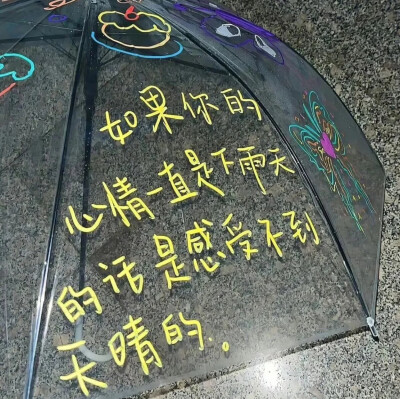 如果你的
心情一直是下雨天
的话是感受不到
天晴的。